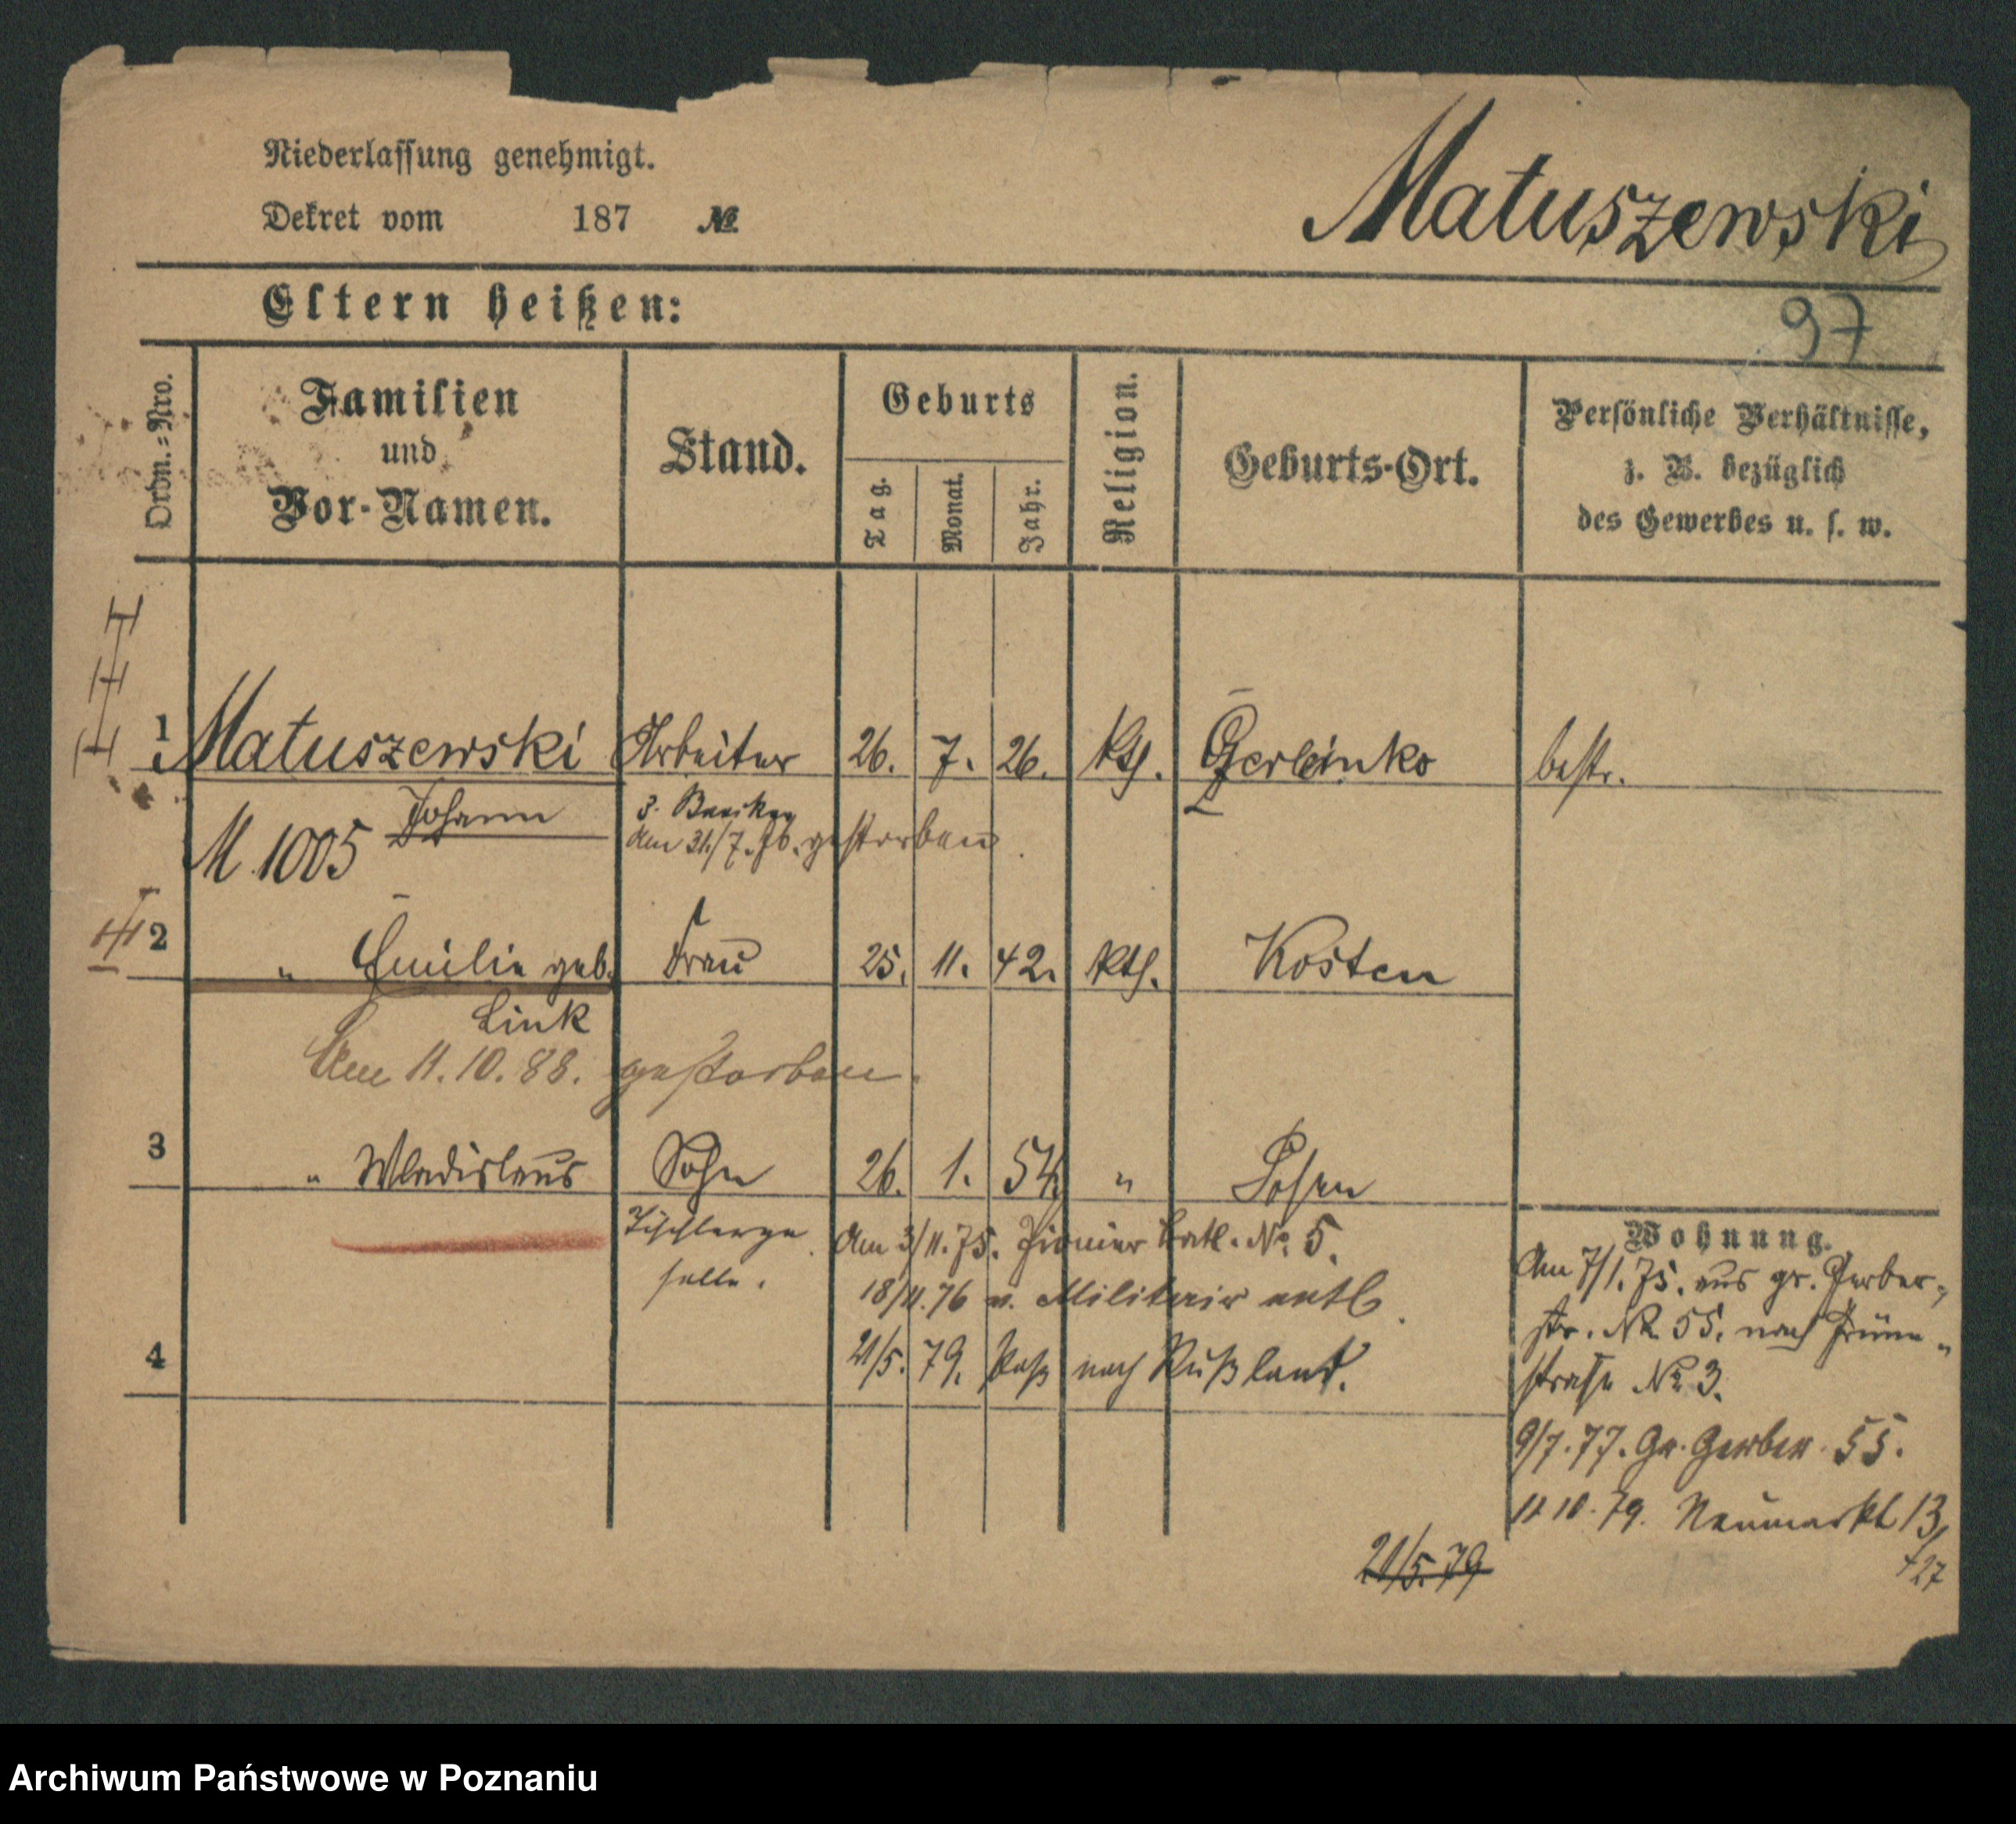 Niederlassung genehmigt.
Dekret vom 187 №
Matuszewski
Eltern heißen:
97
Ordn.=Nro.
Familien
und
Vor-Namen.
Stand.
Geburts
Tag.
Monat.
Jahr.
Religion.
Geburts-Ort.
Persönliche Verhältnisse,
z. B. bezüglich
des Gewerbes u. s. w.
1 Matuszewski Arbeiter 26. 7. 26. kth. bestr.
Johann
M 1005
am 31/7. 76. gestorben.
2 " Emilie geb. Frau 25. 11. 42. kth. Kosten
Link
Am 11.10.88. gestorben.
3 " Wladislaus Sohn 26. 1. 54. " Posen
Tischlerge
selle.
Am 3/11.75. Pionier Batl. No 5.
18/11.76 v. Militair entl.
21/5. 79. Paß nach Rußland.
4
Wohnung.
Am 7/1.75. aus gr. Gerber-
str. No 55. nach Grüne-
straße No 3.
9/7.77. Gr. Gerber. 55.
11 10. 79. Neumarkt 13/
+27
21/5.79
Archiwum Państwowe w Poznaniu